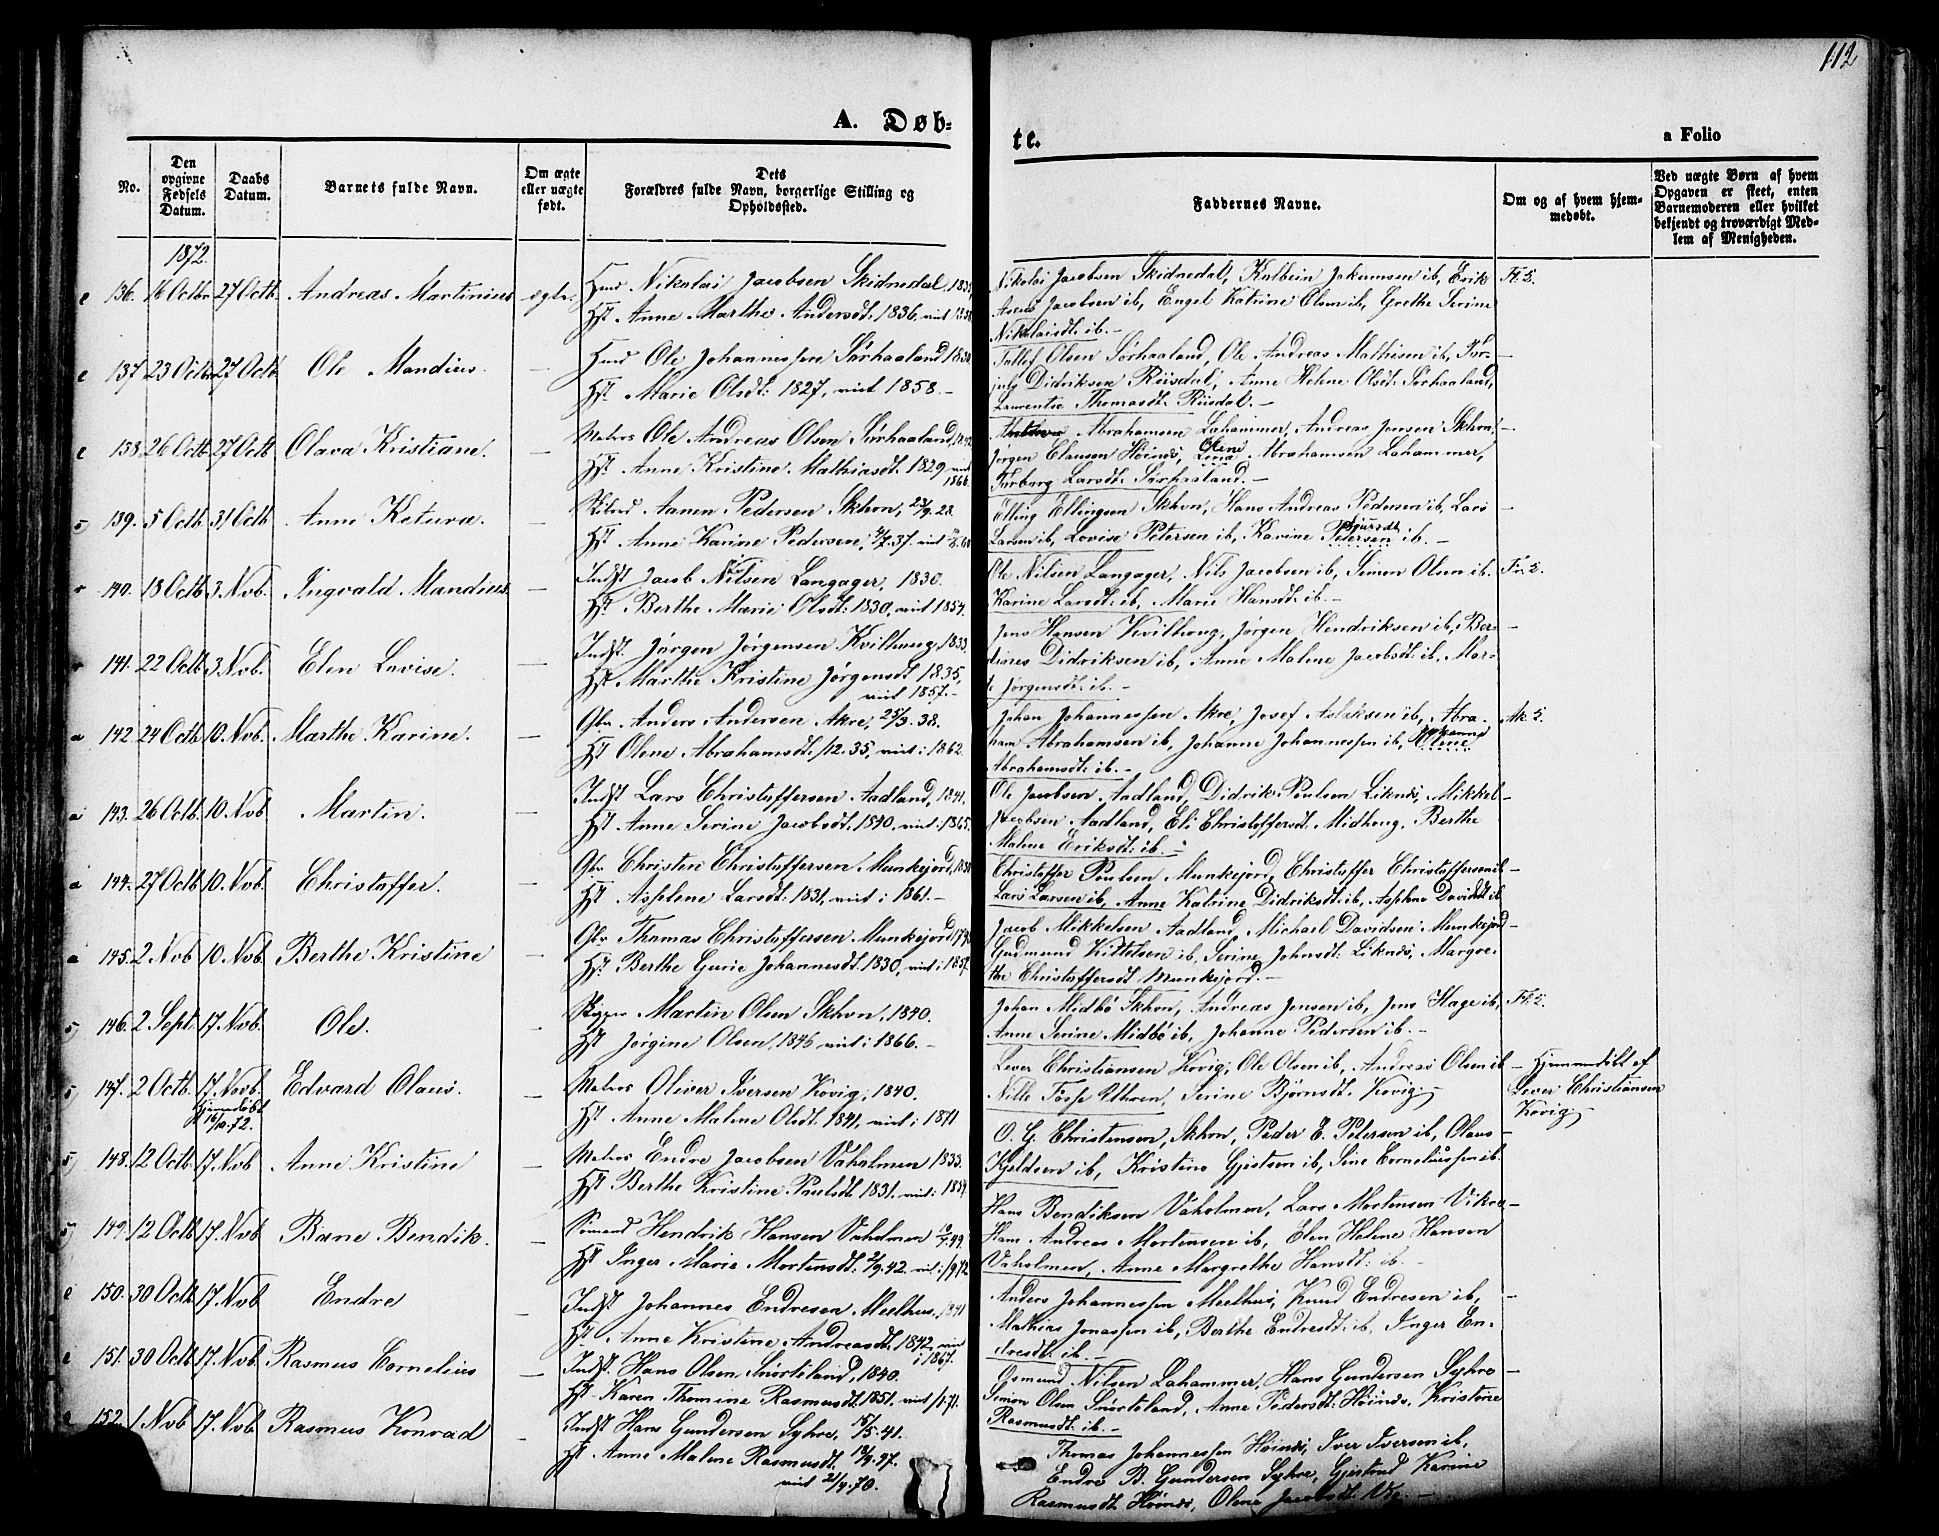 112
A. Døb-
te.
a Folio
No.
Den opgivne Fødsels Datum.
Daabs Datum.
Barnets fulde Navn.
Om ægte eller uægte født.
Dets Forældres fulde Navn, borgerlige Stilling og Opholdssted.
Faddernes Navne.
Om og af hvem hjem-
medøbt.
Ved uægte Børn af hvem
Opgaven er skeet, enten
Barnemoderen eller hvilket
bekjendt og troværdigt Med-
lem af Menigheden.
1872.
136. 16 Octbr 27 Octb Andreas Martinius ægte. Nikolai Jacobsen Skidnedal,
Hst. Anne Marthe Andersdt. 1836,
Nikolai Jacobsen Skidnedal, Jakumsen ib, Erik
Jacobsen ib, Engel Katrine Olsen ib, Grethe Serine
Nikolaisdt. ib. –
137 23 Octbr 27 Octb Ole Mandius. – Ole Johannessen Sørhaaland
Hst. Marie Olsdt: 1827, viet 1858. –
Tollef Olsen Sørhaaland, Ole Andreas Mathisen ib, Tor-
Didriksen Riisdal, Anne Helene Olsdt. Sørhaaland,
Laurentse Thomasdt. Riisdal. –
138 26 Octb 27 Octb Olava Kristiane. – Matros Ole Andreas Olsen Sørhaaland,
Hst. Anne Kristine Mathiasdt. 1829, viet
1866.
Abrahamsen Lahammer, Andreas Jensen Skhvn,
Jørgen Clausen Høines, Olene Abrahamsen Lahammer,
Torborg Larsdt. Sørhaaland. –
139. 5 Octb 31 Octb Anne Ketura. – Aanen Pedersen Skhvn,
Hst. Anne Karine Pedersen,
Elling Ellingsen Skhvn, Hans Andreas Pedersen ib, Lars
Larsen ib, Lovise Petersen ib, Karine Petersen ib. –
140. 18 Octb 3. Nvb. Ingvald Mandius – Indst Jacob Nilsen Langager, 1830.
Hst. Berthe Marie Olsdt: 1830, viet 1854.
Ole Nilsen Langager, Nils Jacobsen ib, Simon Olsen ib.
Karine Larsdt. ib, Marie Hansdt. ib. –
141. 22 Octb 3. Nvb. Elen Lovise. – Indst. Jørgen Jørgensen Kvilhoug, 1833.
Hst Marthe Kristine Jørgensdt 1835,
viet 1857. –
Jens Hansen Kvilhoug, Jørgen Hendriksen ib, Ber-
Didriksen ib, Anne Malene Jacobsdt. ib, Mar-
Jørgensdt. ib. –
142. 24 Octb 10. Nvb. Marthe Karine. – Gbr. Anders Andersen Akre, 25/3. 38.
Hst Olene Abrahamsdt. /12. 35, viet i 1862.
Johan Johannessen Akre, Josef Aslaksen ib, Abra-
ham Abrahamsen ib, Johanne Johannessen ib,
Abrahamsdt. ib. –
143. 26 Octb. 10. Nvb Martin. – Indst Lars Christoffersen Aadland, 1841.
Hst. Anne Serine Jacobsdt. 1840, viet i 1865.
Ole Jacobsen Aadland, Didrik Poulsen Liknes, Mikkel
Jacobsen Aadland, Eli Christoffersdt. Midhoug, Berthe
Malene Eriksdt. ib. –
144. 27 Octb. 10. Nvb. Christoffer. – Gbr. Christen Christoffersen Munkejord,
Hst. Asplene Larsdt. 1831, viet i 1861. –
Christoffer Poulsen Munkejord, Christoffer Christoffersen ib
Lars Larsen ib, Anne Katrine Didriksdt. ib, Asplene Davidsdt ib
145. 2 Nvb 10. Nvb Berthe Kristine – Gbr Thomas Christoffersen Munkejord
Hst. Berthe Gurie Johannesdt. 1830, viet i 1857.
Jacob Mikkelsen Aadland, Michael Davidsen Munkejord
Gudmund Kittelsen ib, Serine Johnsdt. Liknes, Margre-
the Christoffersdt Munkejord. –
146. 2 Sept. 17. Nvb. Ole. – Skipper Martin Olsen Skhvn, 1840.
Hst Jørgine Olsen, 1846 viet i 1866. –
Johan Midbø Skhvn, Andreas Jensen ib, Jens Hage ib,
Anne Serine Midbø ib, Johanne Pedersen ib. –
147. 2 Octb. 17. Novb. Edvard Olaus. – Matros Oliver Iversen Kovig, 1840.
Hjemmedøbt
Hst. Anne Malene Olsdt. 1841, viet i 1871
Sever Christiansen Kovig, Ole Olsen ib, Andreas Olsen ib
Nille Uthven, Serine Bjørnsdt. Kovig
Hjemmedøbt af
Sever Christiansen
Kovig
148. 12 Octb. 17. Nvb Anne Kristine – Matros Endre Jacobsen Vaholmen 1833.
Hst Berthe Kristine Poulsdt. 1831. viet i 1854.
O. G. Christensen, Skhvn, Peder E. Petersen ib, Olaus
Kjeldsen ib, Kristine Gjertsen ib, Sine Corneliussen ib.
149. 12 Octb 17. Nvb. Bærne Bendik. – Sømand Hendrik Hansen Vaholmen
Hst Inger Marie Mortensdt. 2/9. 42.
Hans Bendiksen Vaholmen, Lars Mortensen Vikre
Hans Andreas Mortensen ib, Elen Helene Hansen
Vaholmen, Anne Margrethe Hansdt. ib. –
150. 30 Octb 17. Nvb Endre – Indst Johannes Endresen Meelhus, 1841
Hst. Anne Kristine Andreasdt. 1842, viet
i 1867.
Anders Johannessen Meelhus, Knud Endresen ib,
Mathias Jonassen ib, Berthe Endresdt. ib, Inger En-
dresdt. ib. –
151. 30 Octb 17. Nvb. Rasmus Cornelius – Indst. Hans Olsen Snorteland, 1840.
Hst Karen Thomine Rasmusdt. 1851. viet
Osmund Nilsen Lahammer, Hans Gundersen Syhre
Simon Olsen Snorteland, Anne Pedersdt. Høines, Kristine
Rasmusdt. ib. –
152. 1. Nvb 17. Nvb. Rasmus Konrad – Indst Hans Gundersen Syhre, 15/5. 41.
Hst. Anne Malene Rasmusdt.
viet 21/4. 70.
Thomas Johannessen Høines, Iver Iversen ib,
Endre B. Gundersen Syhre, Gjertrud Karine
Rasmusdt. Høines, Olene Jacobsdt. –